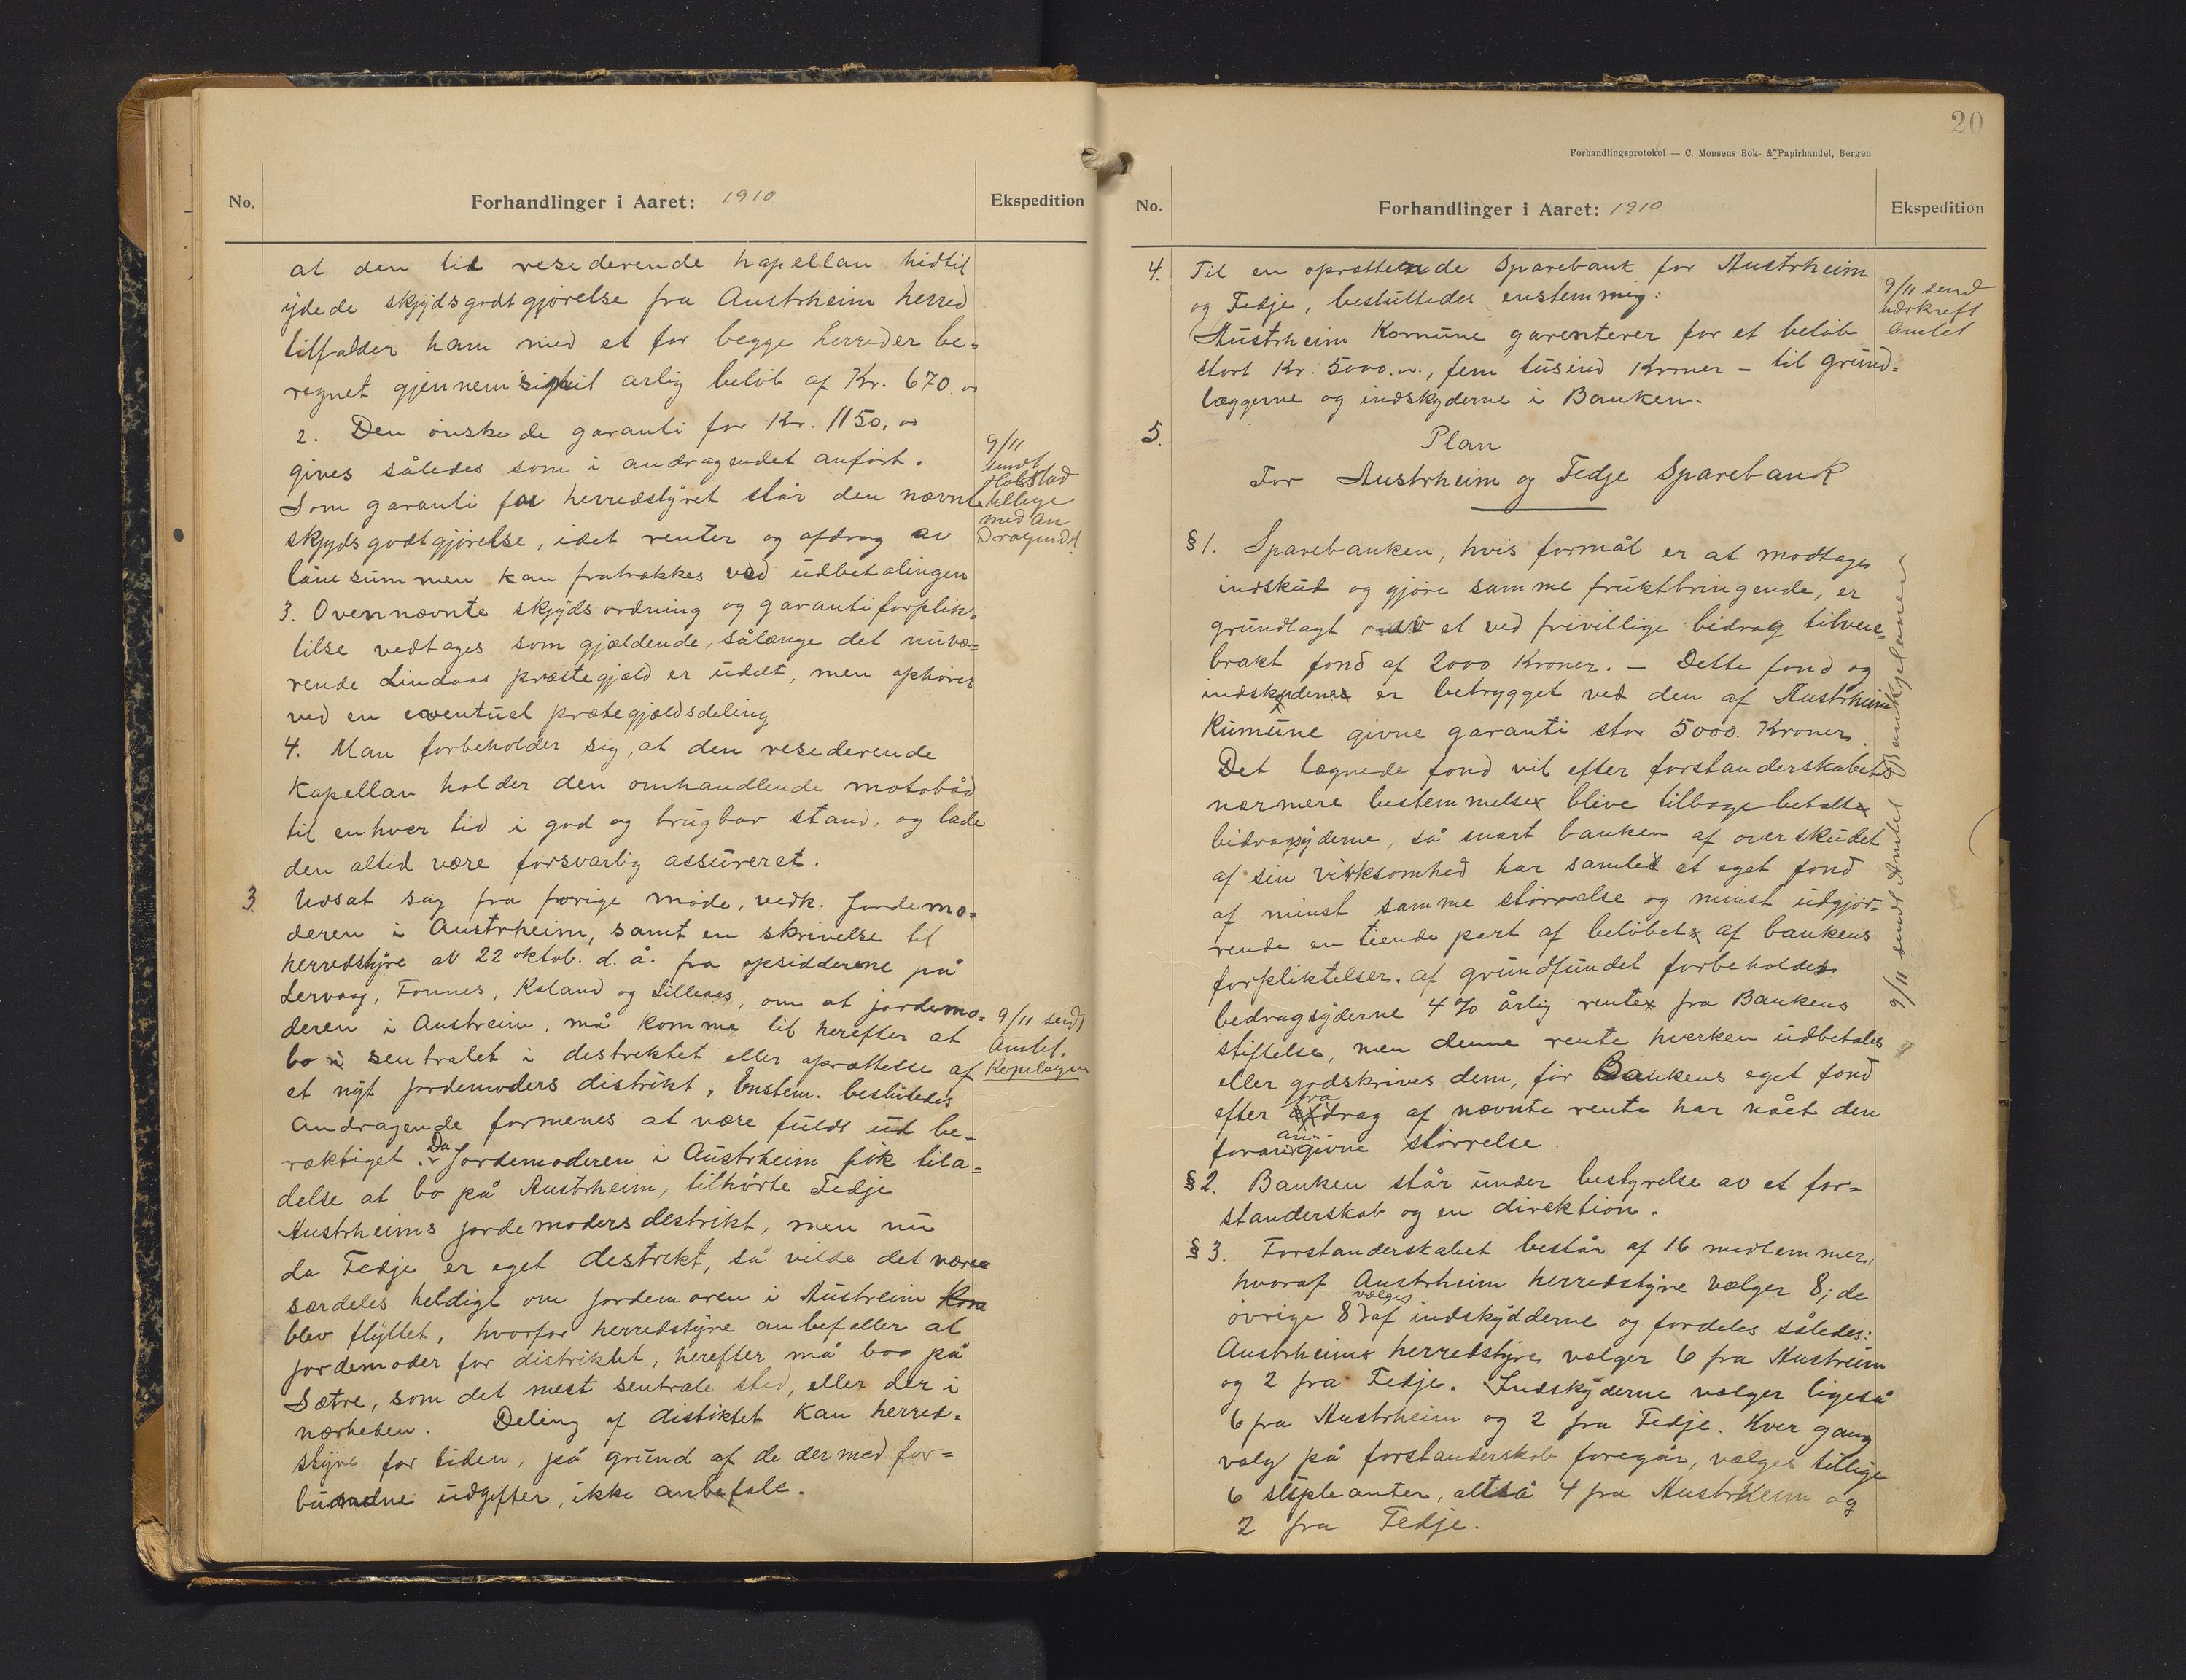 No.
Forhandlinger i Aaret: 1910
Ekspedition
at den tid resederende kapellan hidtil
ydede skydsgodtgjørelse fra Austrheim herred
tilfalder ham med et for begge herreder be=
regnet gjennemsnit arlig beløb af Kr. 670.00
2. Den ønskede garanti for Kr. 1150,00
gives således som i andragendet anført.
Som garanti for herredstyret står den nævnte
skydsgodtgjørelse, idet renter og afdrag av
lånesummen kan fratrækkes ved udbetalingen
9/11
sendt
Halstad
tillige
med An
dragendet
3. Ovennævnte skydsordning og garantiforplik=
tilse vedtages som gjældende, sålænge det nuvæ=
rende Lindaas præstegjeld er udelt, men ophører
ved en eventuel prætegjældsdeling
4. Man forbeholder sig, at den resederende
Kapellan holder den omhandlende motobåd
til enhver tid i god og brugbar stand, og lade
den altid være forsvarlig assureret.
3. Udsat sag fra forige møde, vedk. Jordemo=
deren i Austrheim, samt en skrivelse til
herredstyre av 22 oktob. d. å. fra opsidderene på
Lervaag, Fonnes, Kaland og Lilleaas, om at jordemo=
deren i Austreim, må komme til herefter at
bo i sentralet i destrektet eller oprættelse af
et nyt jordemoders distrikt, Enstem. besluttedes
9/11 sendt
Amtet.
Kopilagen
Andragende formenes at være fuldt ud be=
ræktiget. Da Jordemoderen i Austrheim fik tila=
delse at bo på Austrheim, tilhørte Fedje
Austrheims jordemoders destrikt, men nu
da Fedje er eget destrekt, så vilde det være
særdeles heldigt om jordemoren i Austreim
blev flyttet, hvorfor herredstyre anbefaller at
jordemoder for distriktet, herefter må boo på
Sætre, som det mest sentrale sted, eller der i
nærheden. Deling af distiktet kan herred=
styre for tiden, på grund af de dermed for=
bundne udgifter, ikke anbefale.
20
Forhandlingsprotokol — C. Monsens Bok- & Papirhandel, Bergen
No.
Forhandlinger i Aaret: 1910
Ekspedition
4. Til en oprættende Sparebank for Austrheim
og Fedje, besluttedes enstemmig:
Austrheim Komune garenterer for et beløb
stort Kr. 5000.00, fem tusind Kroner – til grund=
læggerne og indskyderne i Banken.
9/11 send
udskreft
Amtet
5. Plan
For Austrheim og Fedje Sparebank
§ 1. Sparebanken, hvis formål er at modtages
indskud og gjøre samme fruktbringende, er
grundlagt ved et ved frivillige bidrag tilveie=
brakt fond af 2000 Kroner. – Dette fond og
indskudene er betrygget ved den af Austrheim
Kumune givne garanti stor 5000. Kroner.
Det tegnede fond vil efter forstanderskabets
nærmere bestemmelse blive tilbagebetalt
bidragsyderne, så snart banken af overskudet
af sin virksomhed har samlet et eget fond
af minst samme størrelse og minst udgjør=
rende en tiende part af beløbet af bankens
forpliktelser. af grundfundet forbeholdes
bedragsyderne 4 % årlig rente fra Bankens
stiftelse, men denne rente hverken udbetales
eller godskrives dem, før Bankens eget fond
efter fradrag af nævnte rente har nået den
foran angivne størrelse.
9/11 sendt Amtet Bankplanen
§ 2. Banken står under bestyrelse av et for=
standerskab og en direktion.
§ 3. Forstanderskabet består af 16 medlemmer,
hvoraf Austrheim herredstyre vælger 8; de
øvrige 8 vælges af indskydderne og fordeles således:
Austrheims herredstyre vælger 6 fra Austreim
og 2 fra Fedje. Indskyderne vælger ligeså
6 fra Austrheim og 2 fra Fedje. Hver gang
valg på forstanderskab foregår, vælges tillige
6 supleanter, altså 4 fra Austrheim og
2 fra Fedje.